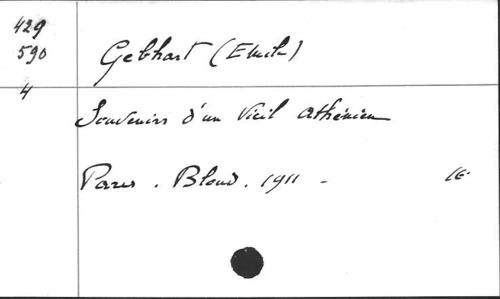 429
590
4
Gebhart (Emile)
Souvenirs d'un vieil athénien
Paris. Bloud. 1911 - 16